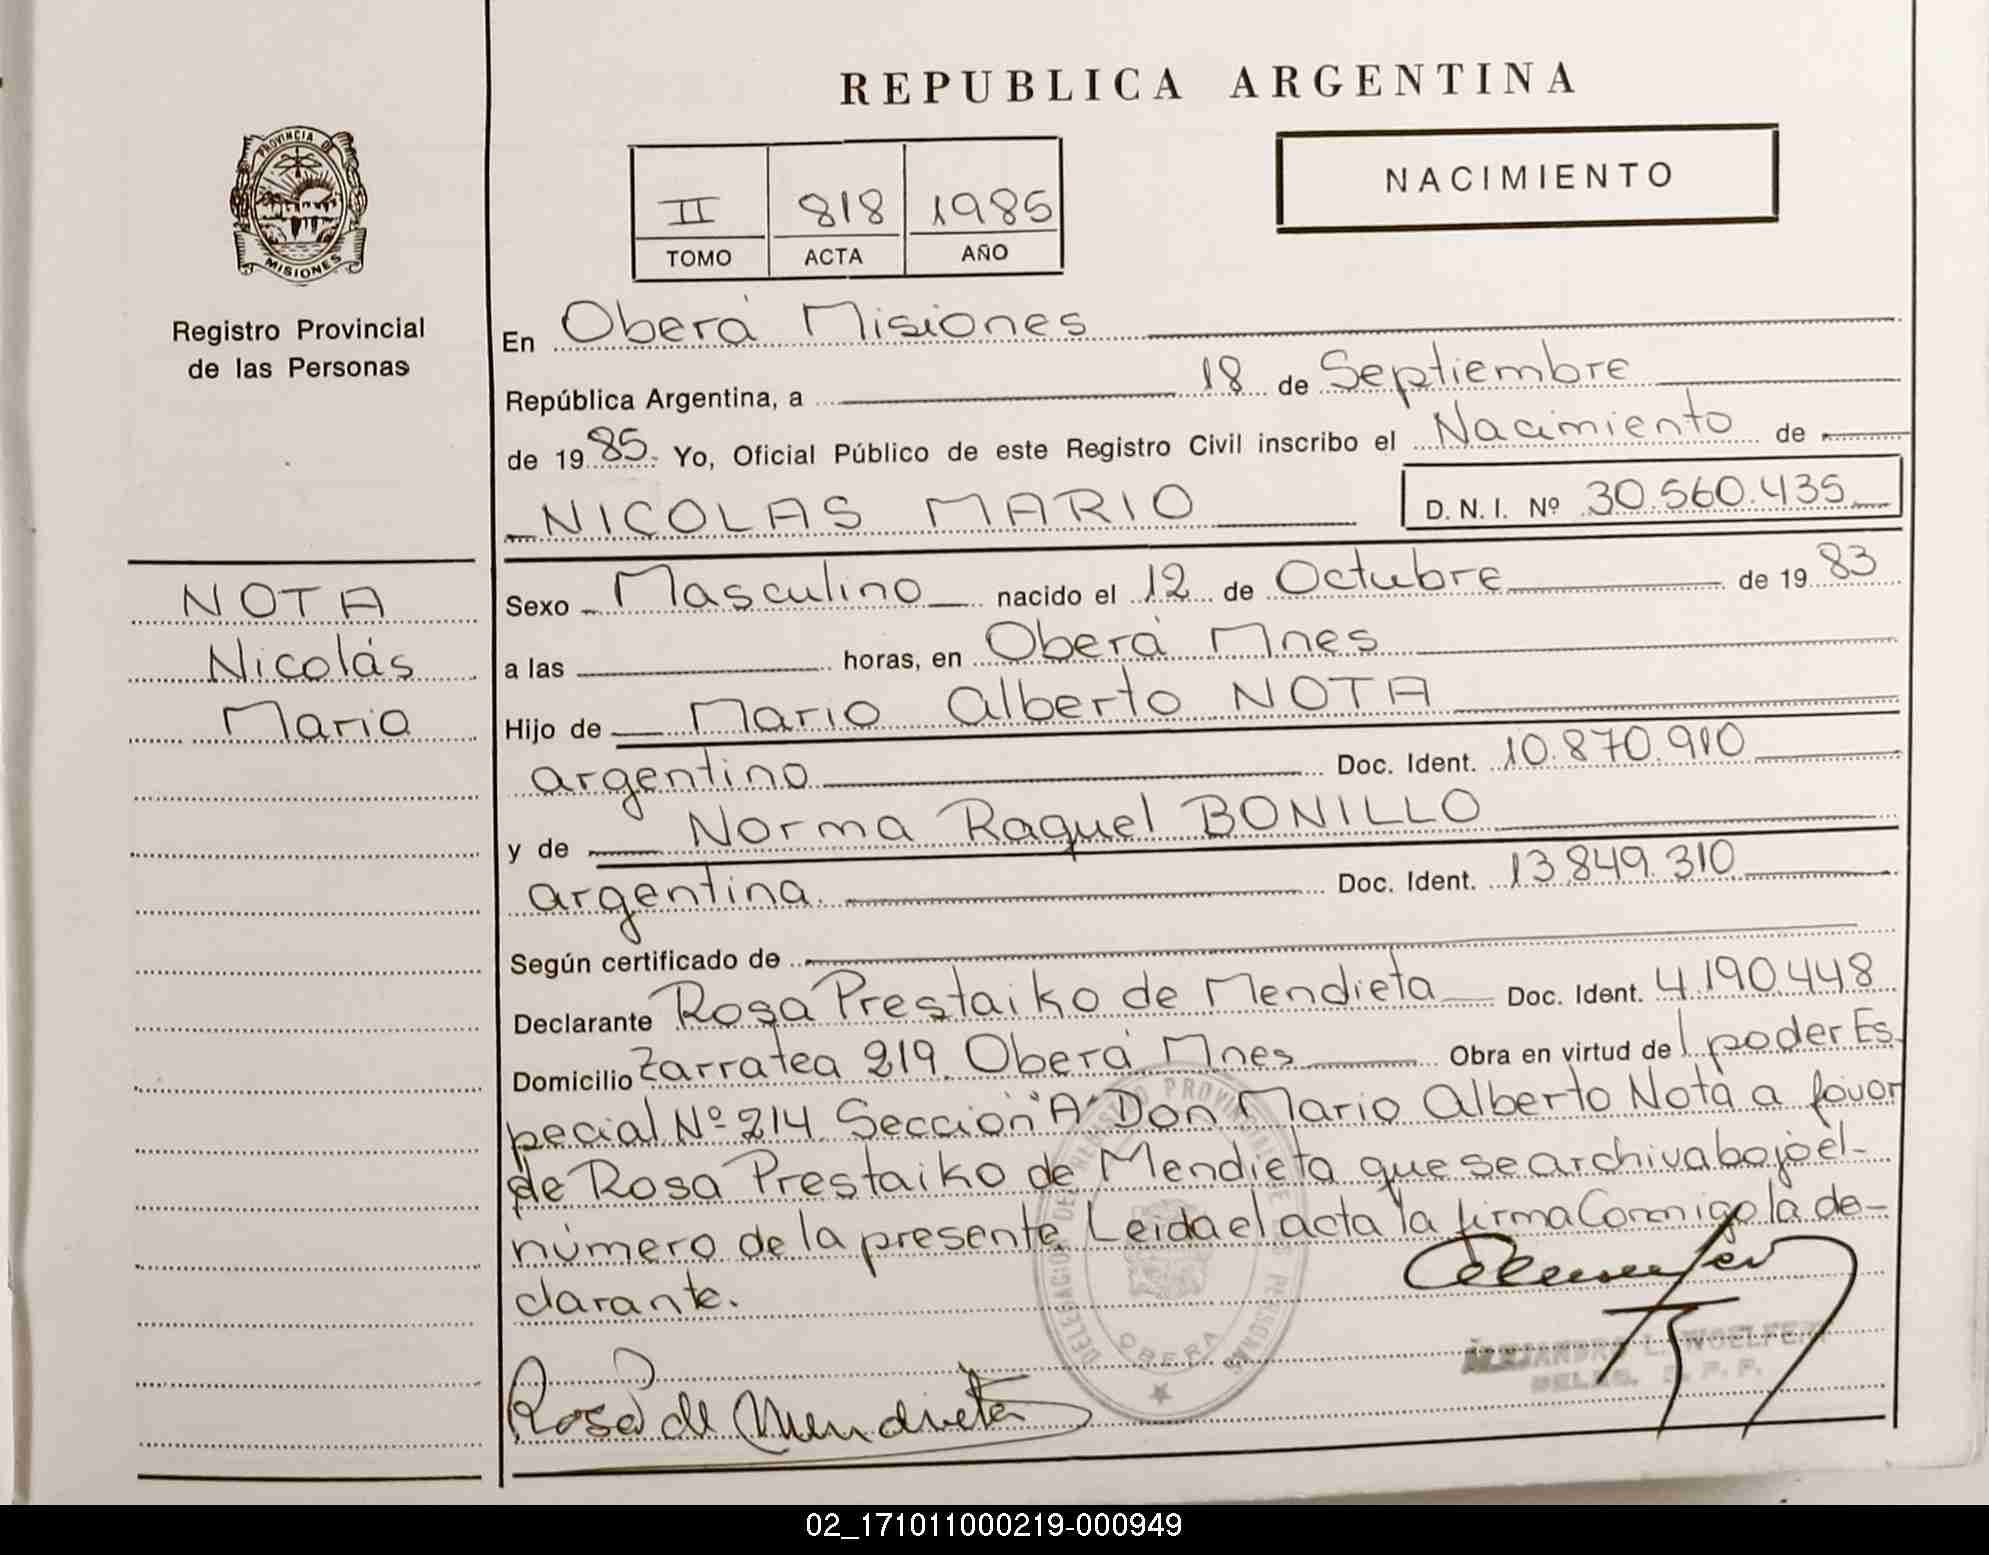 REPUBLICA ARGENTINA
PROVINCIA DE
MISIONES
Registro Provincial
de las Personas
II 818 1985
TOMO ACTA AÑO
NACIMIENTO
En Oberá Misiones
República Argentina, a 18 de Septiembre
de 1985. Yo, Oficial Público de este Registro Civil inscribo el Nacimiento de
NICOLAS MARIO D. N. I. Nº 30.560.435
NOTA
Nicolás
Mario
Sexo Masculino nacido el 12 de Octubre de 1983
a las horas, en Oberá Mnes
Hijo de Mario Alberto NOTA
argentino Doc. Ident. 10.870.910
y de Norma Raquel BONILLO
argentina. Doc. Ident. 13.849.310
Según certificado de
Declarante Rosa Prestaiko de Mendieta Doc. Ident. 4.190.448
Domicilio Zarratea 219. Oberá Mnes Obra en virtud del poder Es-
pecial Nº 214 Sección "A" Don Mario Alberto Nota a favor
de Rosa Prestaiko de Mendieta que se archiva bajo el-
número de la presente. Leida el acta la firma Conmigo la de-
clarante.
DELEGACION DEL REGISTRO PROVINCIAL DE PERSONAS
OBERA
Rosa de Mendieta
ALEJANDRO L. WOELFERT
02_171011000219-000949